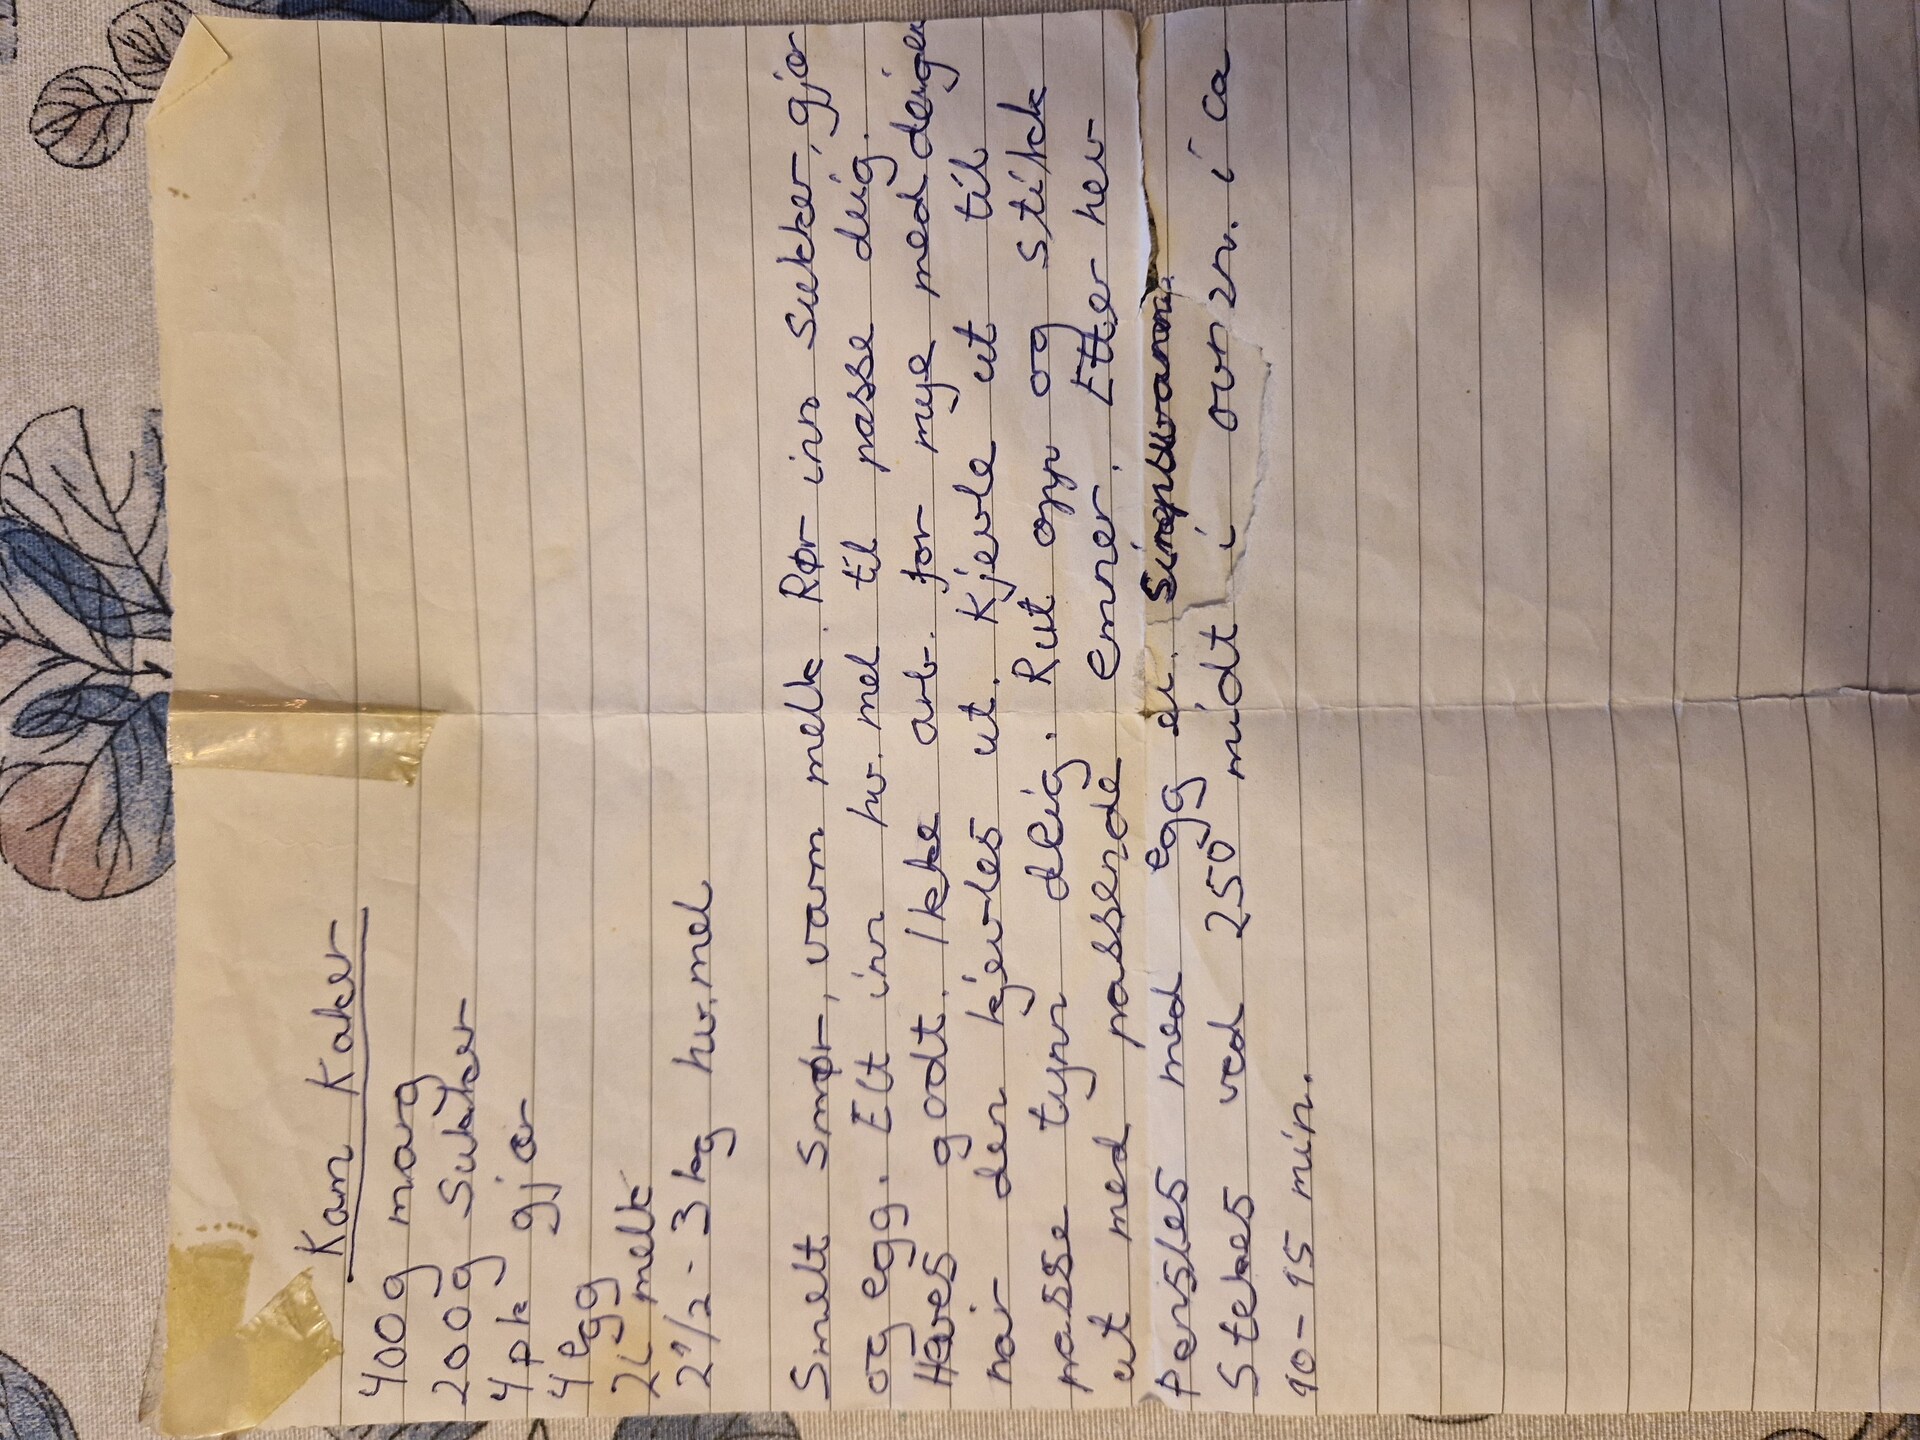 Kam Kaker
400g marg
200g Sukker
4pk gjær
4 egg
2L melk
2 1/2 - 3 kg hv. mel
Smelt smør, varm melk. Rør inn Sukker, gjær
og egg. Elt inn hv. mel til passe deig.
Heves godt. Ikke arb. for mye med deigen
når den kjevles ut. Kjevle ut til
passe tynn deig. Rut opp og stikk
ut med passende emner. Etter hev
Pensles med egg el. Sirupsvann.
Stekes ved 250° midt i ovnen. i ca
10-15 min.